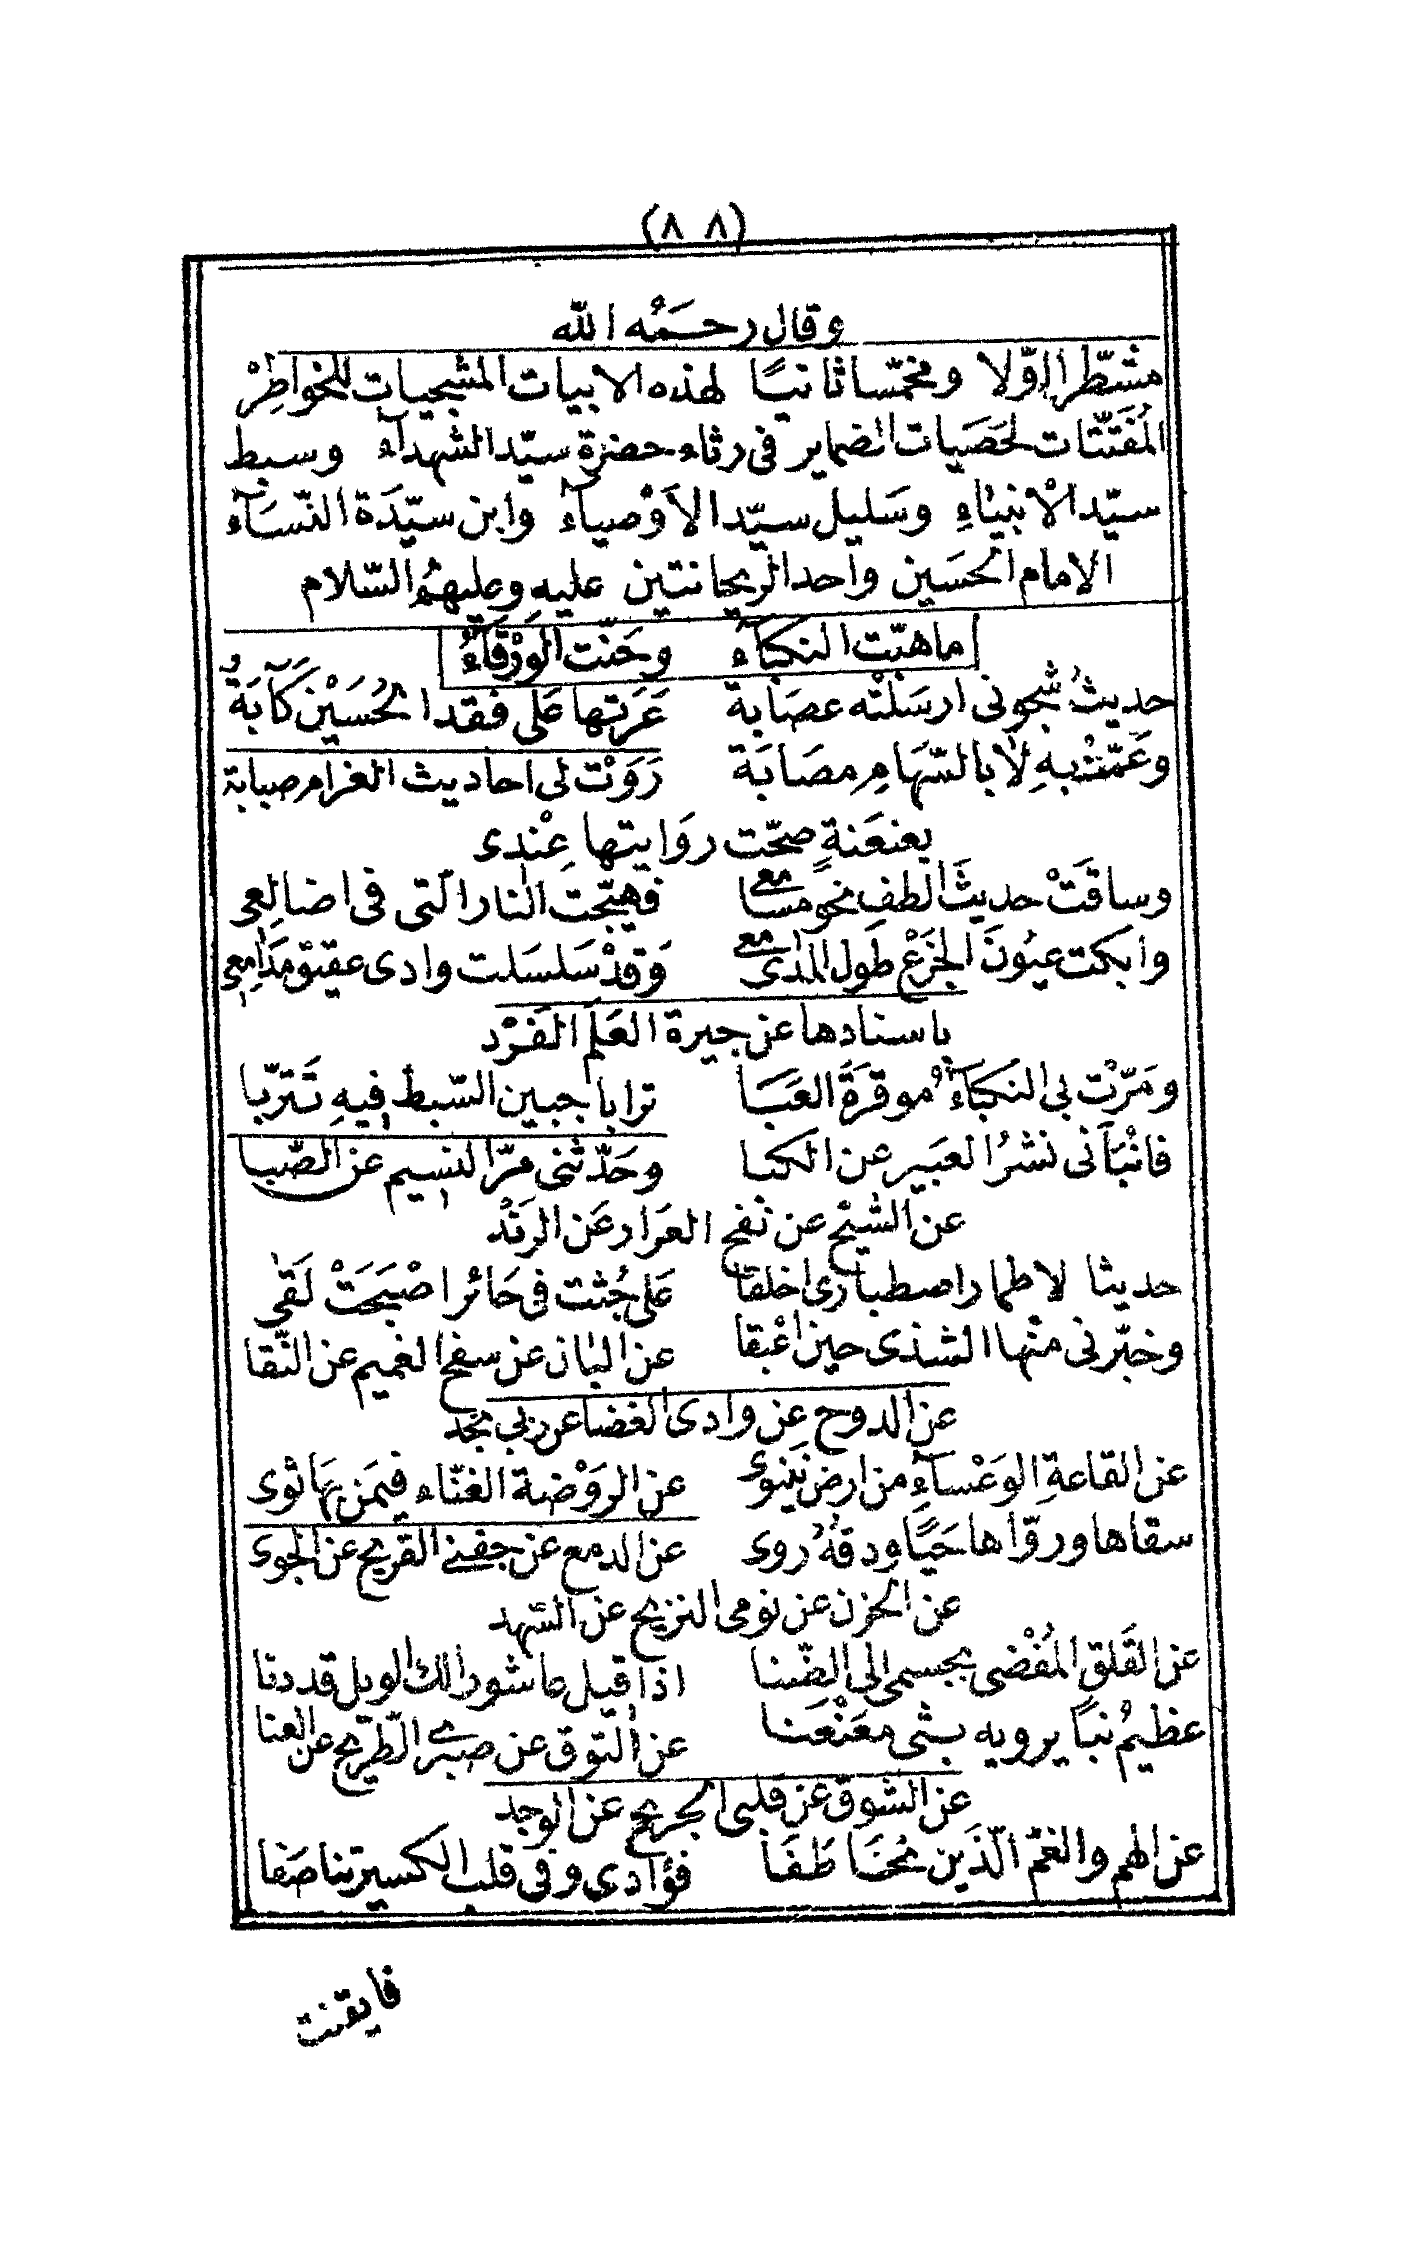 (٨٨)
وقال رحمه الله
مشطّرا اوّلا ومخمّسا ثانيًا لهذه الابيات المشجيات للخواطِرْ
المُفَتِّتات لحَصَيات الضماير فى رثاء حضرة سيّد الشهدآء وسبط
سيّد الأنبيٰاءِ وسَليل سيّد الاَوْصيآء وابن سيّدَة النّسَآء
الامام الحسَين واحد الريحانتين عليه وعليهمُ السّلام
ما هبّت النكبآء وحَنّت الوَرْقَآءُ
حديثُ شجونى ارسَلتْه عصَابة عَرَتها عَلى فقد الحُسَيْن كَآبَةٌ
وعَمّتْ بهِ لا بالسّهَامِ مصَابَة رَوَتْ لى احاديث الغرام صبابة
بعنعَنةٍ صحّت روَايتها عِنْدى
وساقَتْ حديثَ الطف نحوَ مسامعى فهيّجت النار الّتى فى اضالِعى
وابكت عيُونَ الجَزْعِ طول المدٰى معى وَقدْ سَلسَلت وادى عقيق مدَامِعى
باسنادها عن جيرة العَلَم الفَرْد
ومَرّتْ بى النكبَآءُ موقرَةَ العَبَا ترابا جبين السّبط فيهِ تَترّبا
فانْبَأنى نشرُ العبَير عن الكبا وحَدّثنى مرّ النسيم عن الصّبا
عن الشيْح عن نَفح العَرَار عَن الرنْد
حديثا لاطمار اصطبارى اخلقا عَلى جُثث فى حَائر اصْبَحَتْ لَقَى
وخبّرنى منْها الشذى حين اعْبقا عن البٰان عن سفح الغميم عن النّقا
عن الدوح عن وادى الغضا عن ربى نجد
عن القاعةِ الوَعْسآءِ من ارض نَينوى عن الروَضة الغنّاء فيمَن بهَا ثوى
سقاها وروّاها حَيًا ودقهُ روى عن الدمع عن جفنى القريح عن الجوى
عن الحزن عن نومى النزيح عن السّهد
عن القَلق المُفْضى بجسمى الى الضّنا اذا قيل عاشورا لك الويل قد دنا
عظيمُ نبًا يرويه بثّى معَنْعَنا عن التّوق عن صبرى الطّريح عن العنا
عن الشوق عن قلبى الجريح عن الوجد
عن الهم والغمّ الّذين نحَا طَفَا فؤادى وفى قلب الكسير تناصَفا
فايقنت